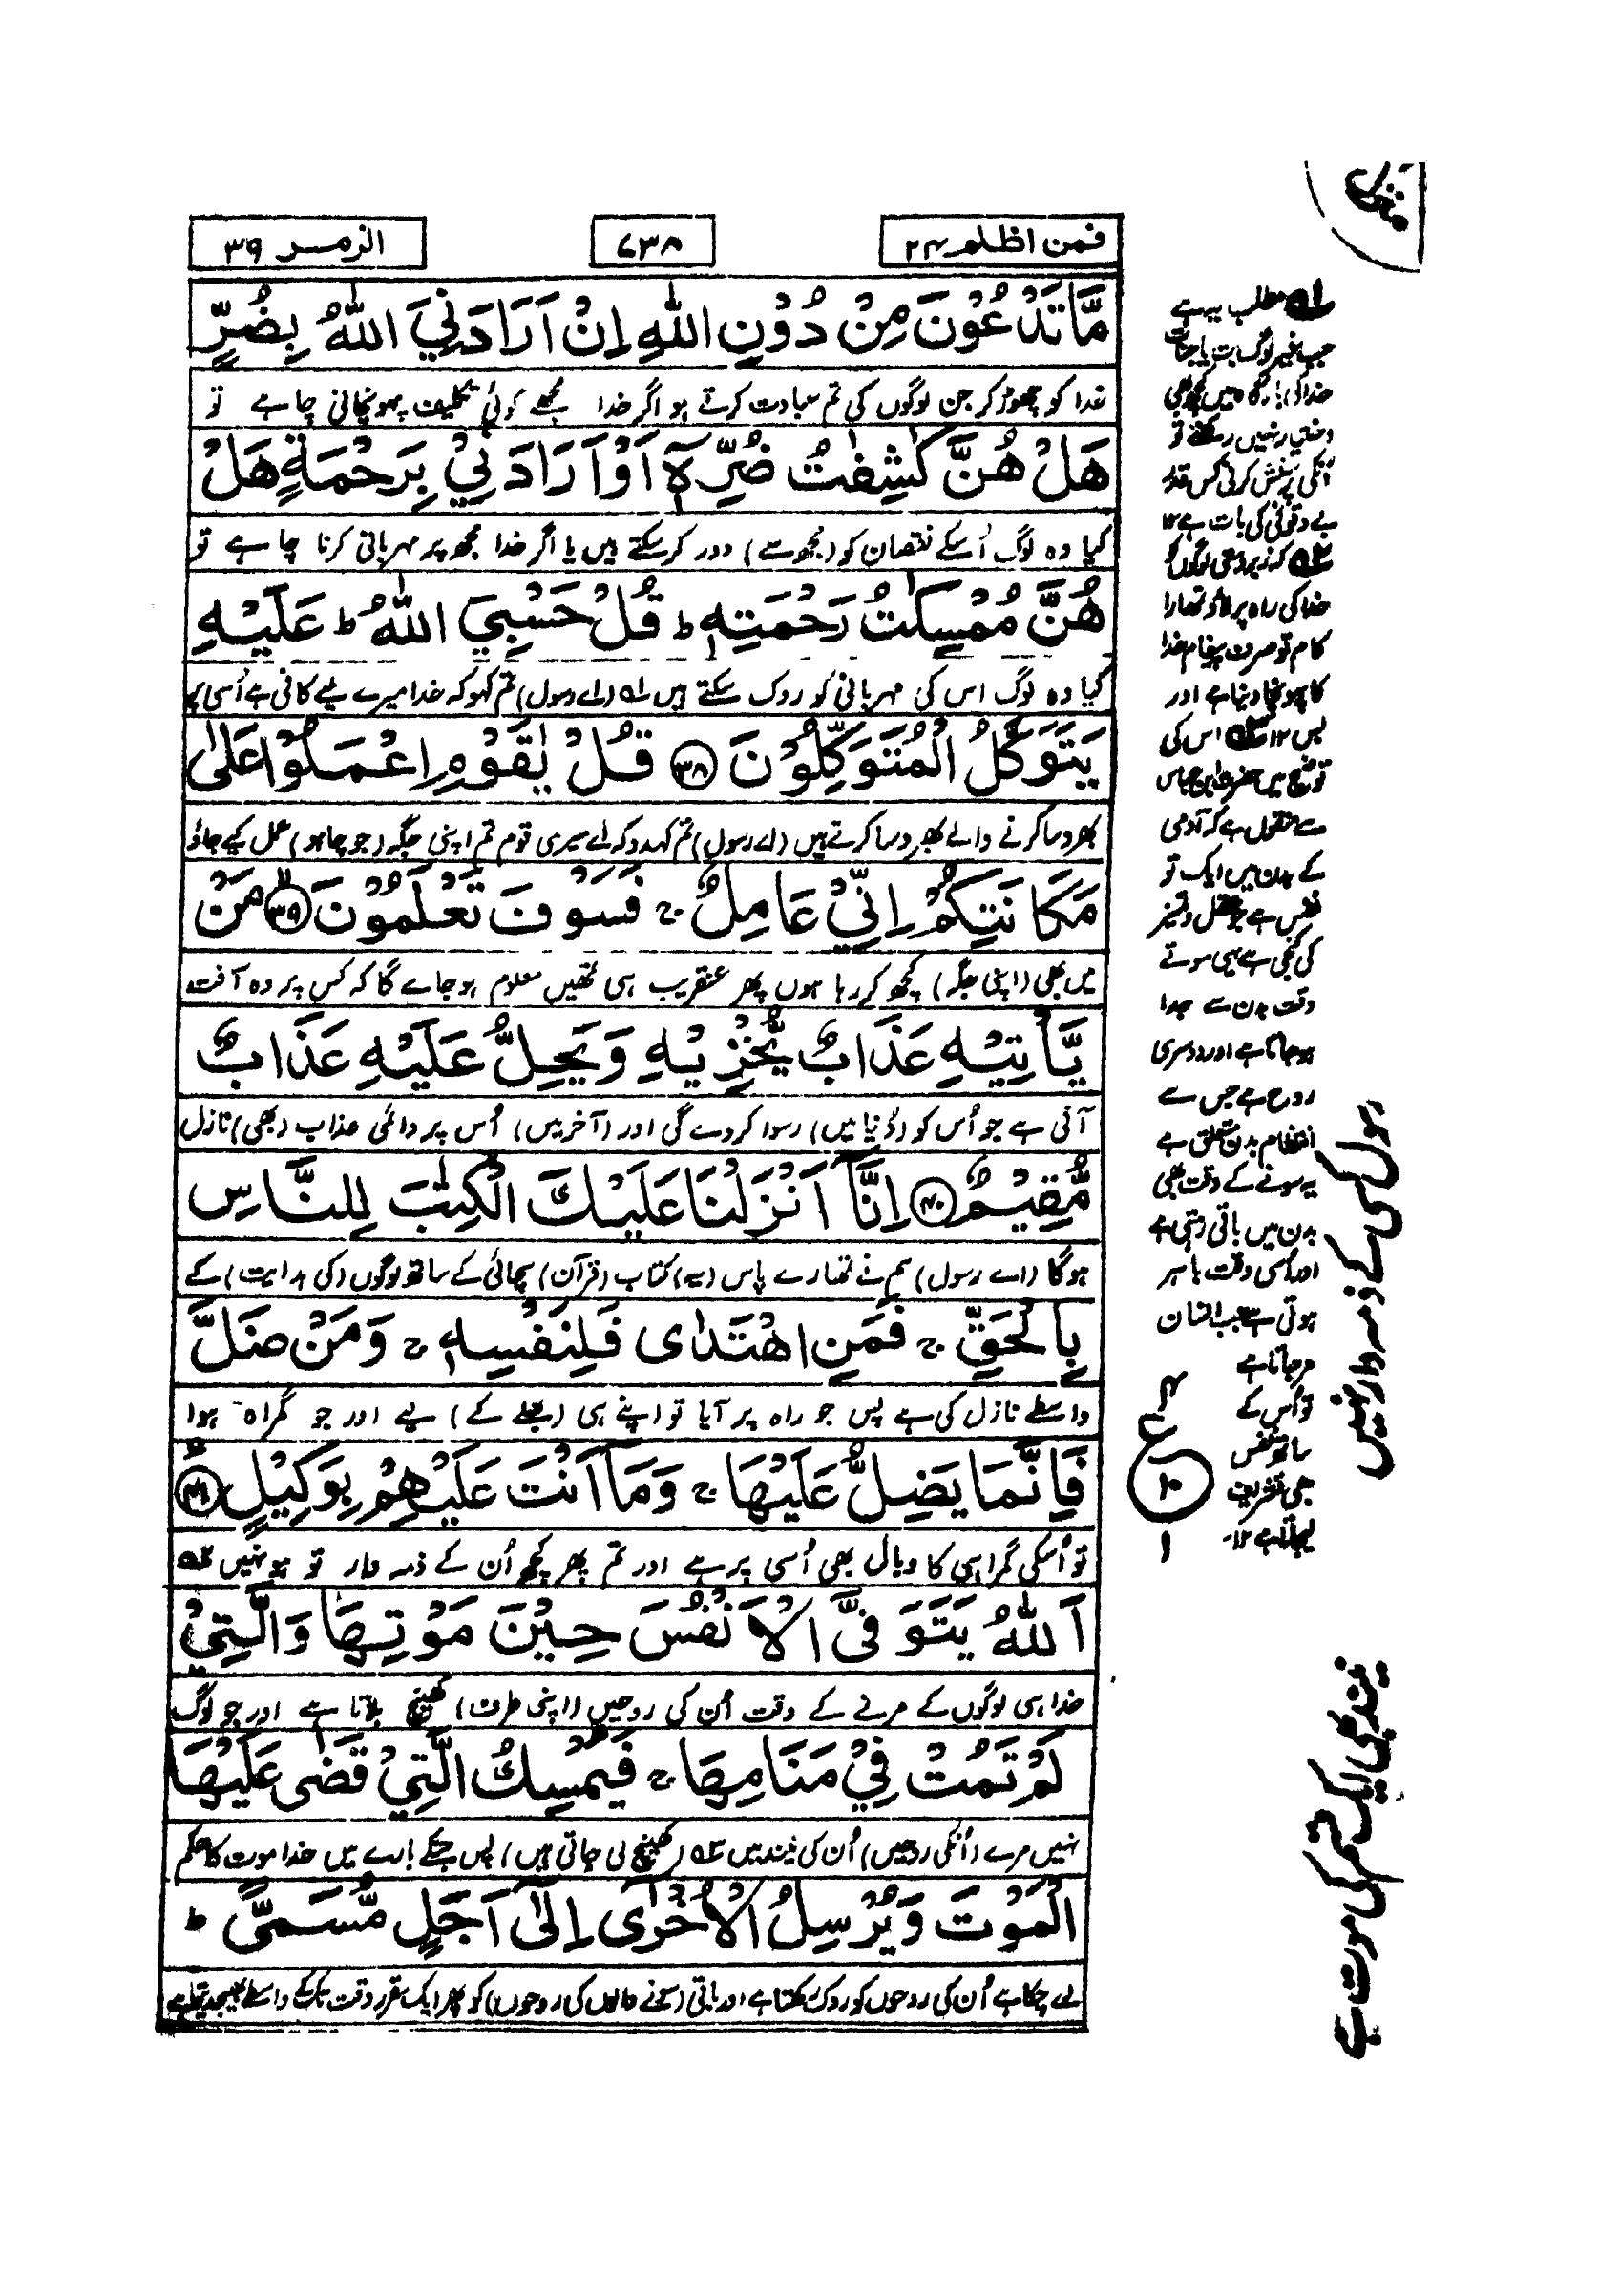 فمن اظلم ۲۴
۷۳۸
الزمر ۳۹
مَّا تَدْعُوْنَ مِنْ دُوْنِ اللّٰهِ اِنْ اَرَادَنِيَ اللّٰهُ بِضُرٍّ
خدا کو چھوڑ کر جن لوگوں کی تم عبادت کرتے ہو اگر خدا مجھے کوئی تکلیف پہونچانی چاہے تو
هَلْ هُنَّ كٰشِفٰتُ ضُرِّهٖٓ اَوْ اَرَادَنِيْ بِرَحْمَةٍ هَلْ
کیا وہ لوگ اُسکے نقصان کو (مجھ سے) دور کرسکتے ہیں یا اگر خدا مجھ پر مہربانی کرنا چاہے تو
هُنَّ مُمْسِكٰتُ رَحْمَتِهٖ ؕ قُلْ حَسْبِيَ اللّٰهُ ؕ عَلَيْهِ
کیا وہ لوگ اس کی مہربانی کو روک سکتے ہیں ۱؎ (اے رسول) تم کہو کہ خدا میرے لیے کافی ہے اُسی پر
يَتَوَكَّلُ الْمُتَوَكِّلُوْنَ ﴿۳۸﴾ قُلْ يٰقَوْمِ اعْمَلُوْا عَلٰى
بھروسا کرنے والے بھروسا کرتے ہیں (اے رسول) تم کہدو کہ اے میری قوم تم اپنی جگہ (جو چاہو) عمل کیے جاؤ
مَكَانَتِكُمْ اِنِّيْ عَامِلٌ ۚ فَسَوْفَ تَعْلَمُوْنَ ﴿ۙ۳۹﴾ مَنْ
میں بھی (اپنی جگہ) کچھ کر رہا ہوں پھر عنقریب ہی تمھیں معلوم ہو جاے گا کہ کس پر وہ آفت
يَّاْتِيْهِ عَذَابٌ يُّخْزِيْهِ وَيَحِلُّ عَلَيْهِ عَذَابٌ
آتی ہے جو اُس کو (دُنیا میں) رسوا کر دے گی اور (آخر میں) اُس پر دائمی عذاب (بھی) نازل
مُّقِيْمٌ ﴿۴۰﴾ اِنَّاۤ اَنْزَلْنَا عَلَيْكَ الْكِتٰبَ لِلنَّاسِ
ہوگا (اے رسول) ہم نے تمھارے پاس (یہ) کتاب (قرآن) سچائی کے ساتھ لوگوں (کی ہدایت) کے
بِالْحَقِّ ۚ فَمَنِ اهْتَدٰى فَلِنَفْسِهٖ ۚ وَمَنْ ضَلَّ
واسطے نازل کی ہے پس جو راہ پر آیا تو اپنے ہی (بھلے کے) لیے اور جو گمراہ ہوا
فَاِنَّمَا يَضِلُّ عَلَيْهَا ۚ وَمَاۤ اَنْتَ عَلَيْهِمْ بِوَكِيْلٍ ﴿۴۱﴾
تو اُسکی گمراہی کا وبال بھی اُسی پر ہے اور تم پھر کچھ اُن کے ذمہ دار تو ہو نہیں ۲؎
اَللّٰهُ يَتَوَفَّى الْاَنْفُسَ حِيْنَ مَوْتِهَا وَالَّتِيْ
خدا ہی لوگوں کے مرنے کے وقت اُن کی روحیں (اپنی طرف) کھینچ بلاتا ہے اور جو لوگ
لَمْ تَمُتْ فِيْ مَنَامِهَا ۚ فَيُمْسِكُ الَّتِيْ قَضٰى عَلَيْهَا
نہیں مرے (اُنکی روحیں) اُن کی نیند میں ۳؎ (کھینچ لی جاتی ہیں) پس جنکے بارے میں خدا موت کا حکم
الْمَوْتَ وَيُرْسِلُ الْاُخْرٰۤى اِلٰۤى اَجَلٍ مُّسَمًّى ؕ
دے چکا ہے اُن کی روحوں کو روک رکھتا ہے اور باقی (سونے والوں کی روحوں) کو پھر ایک مقرر وقت تک کے واسطے بھیجدیتا ہے
۱؎ مطلب یہ ہے
جب غیر لوگ بت یا جنات
خدا کی بارگاہ میں کچھ بھی
اختیار نہیں رکھتے تو
اُنکی پرستش کرنی کس قدر
بے وقوفی کی بات ہے ۱۲
۲؎ کہ زبردستی لوگوں کو
خدا کی راہ پر لاؤ تمھارا
کام تو صرف پیغام خدا
کا پہونچا دینا ہے اور
بس ۱۲ ۳؎ اس کی
توضیح میں حضرت ابن عباس
سے منقول ہے کہ آدمی
کے بدن میں ایک تو
نفس ہے جو عقل و تمیز
کی کنجی ہے یہی سوتے
وقت بدن سے جدا
ہو جاتا ہے اور دوسری
روح ہے جس سے
انتظام بدن متعلق ہے
یہ سونے کے وقت بھی
بدن میں باقی رہتی ہے
اور اُسی وقت باہر
ہوتی ہے جب انسان
مر جاتا ہے
تو اُس کے
ساتھ نفس
بھی تشریف
لیجاتا ہے ۱۲
۴
ع
۱۰
۱
رسول کسی کے ذمہ دار نہیں
نیند بھی ایک طرح کی موت ہے